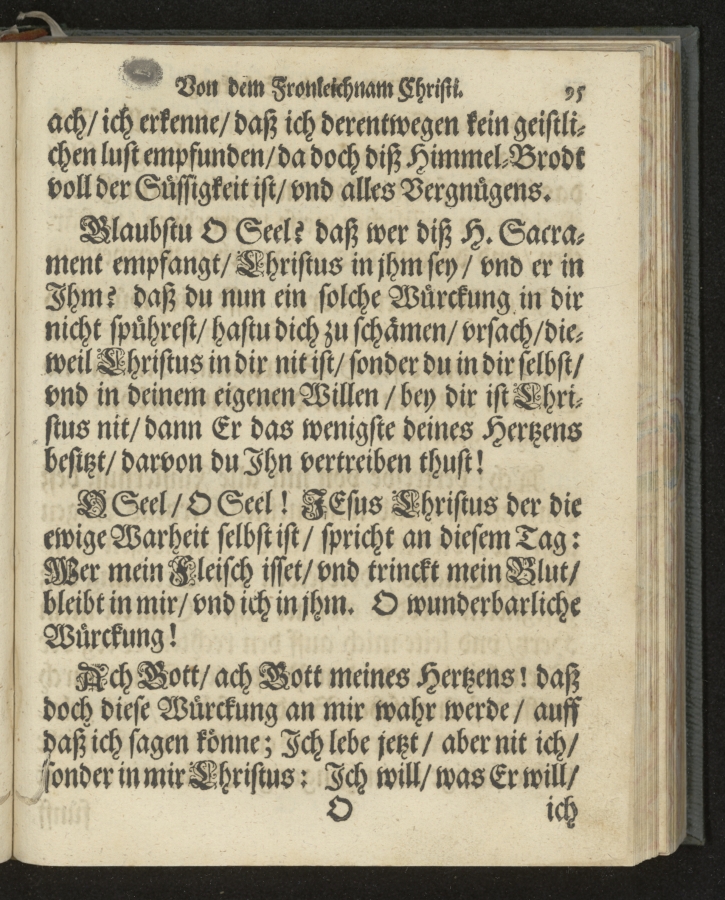 Von dem Fronleichnam Christi. 95
ach/ ich erkenne/ daß ich derentwegen kein geistli⸗
chen lust empfunden/ da doch diß Himmel⸗Brodt
voll der Süssigkeit ist/ vnd alles Vergnügens.
Glaubstu O Seel? daß wer diß H. Sacra⸗
ment empfangt/ Christus in jhm sey/ vnd er in
Ihm? daß du nun ein solche Würckung in dir
nicht spührest/ hastu dich zu schämen/ vrsach/ die⸗
weil Christus in dir nit ist/ sonder du in dir selbst/
vnd in deinem eigenen Willen/ bey dir ist Chri⸗
stus nit/ dann Er das wenigste deines Hertzens
besitzt/ darvon du Ihn vertreiben thust!
O Seel/ O Seel! JEsus Christus der die
ewige Warheit selbst ist/ spricht an diesem Tag:
Wer mein Fleisch isset/ vnd trinckt mein Blut/
bleibt in mir/ vnd ich in jhm. O wunderbarliche
Würckung!
Ach Gott/ ach Gott meines Hertzens! daß
doch diese Würckung an mir wahr werde/ auff
daß ich sagen könne; Ich lebe jetzt/ aber nit ich/
sonder in mir Christus: Ich will/ was Er will/
O ich